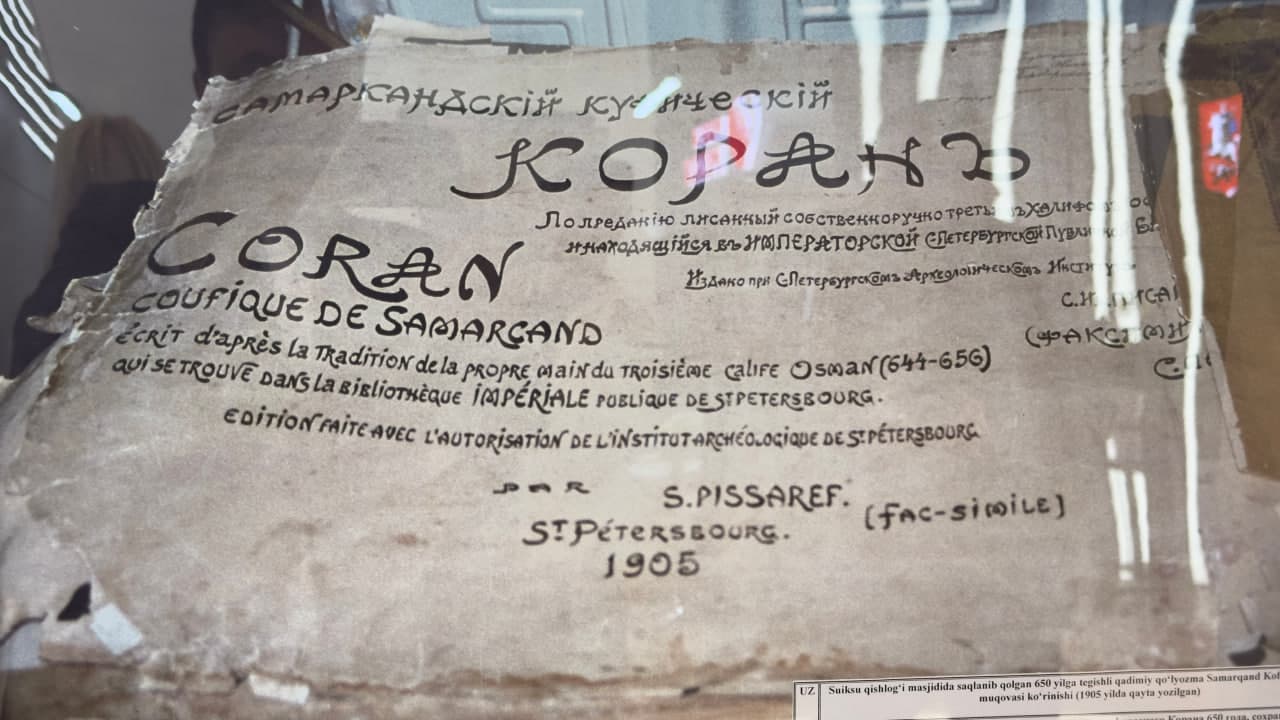 САМАРКАНДСКІЙ КУФИЧЕСКІЙ
КОРАНЪ
По преданію писанный собственноручно третьимъ Халифомъ
и находящійся въ ИМПЕРАТОРСКОЙ С.Петербургской Публ
Издано при С.Петербургскомъ Археологическомъ Инст
С.И.ПИСА
(ФАКСИМИ
CORAN
COUFIQUE DE SAMARCAND
ÉCRIT d'après la TRADITION de la PROPRE main du TROISIÈME CALIFE OSMAN (644-656)
QUI SE TROUVE DANS la BIBLIOTHÈQUE IMPÉRIALE PUBLIQUE DE ST PETERSBOURG.
EDITION FAITE AVEC L'AUTORISATION DE L'INSTITUT ARCHÉOLOGIQUE DE ST PÉTERSBOURG
PAR S.PISSAREF. (FAC-SIMILE)
ST PÉTERSBOURG.
1905
UZ
Suiksu qishlog‘i masjidida saqlanib qolgan 650 yilga tegishli qadimiy qo‘lyozma Samarqand Kof
muqovasi ko‘rinishi (1905 yilda qayta yozilgan)
Корана 650 года, сохран